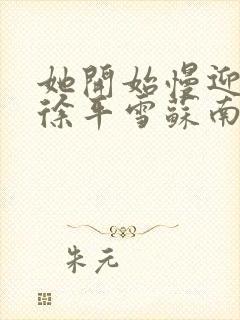 她開始慢迎
徐平雪蘇南
朱元